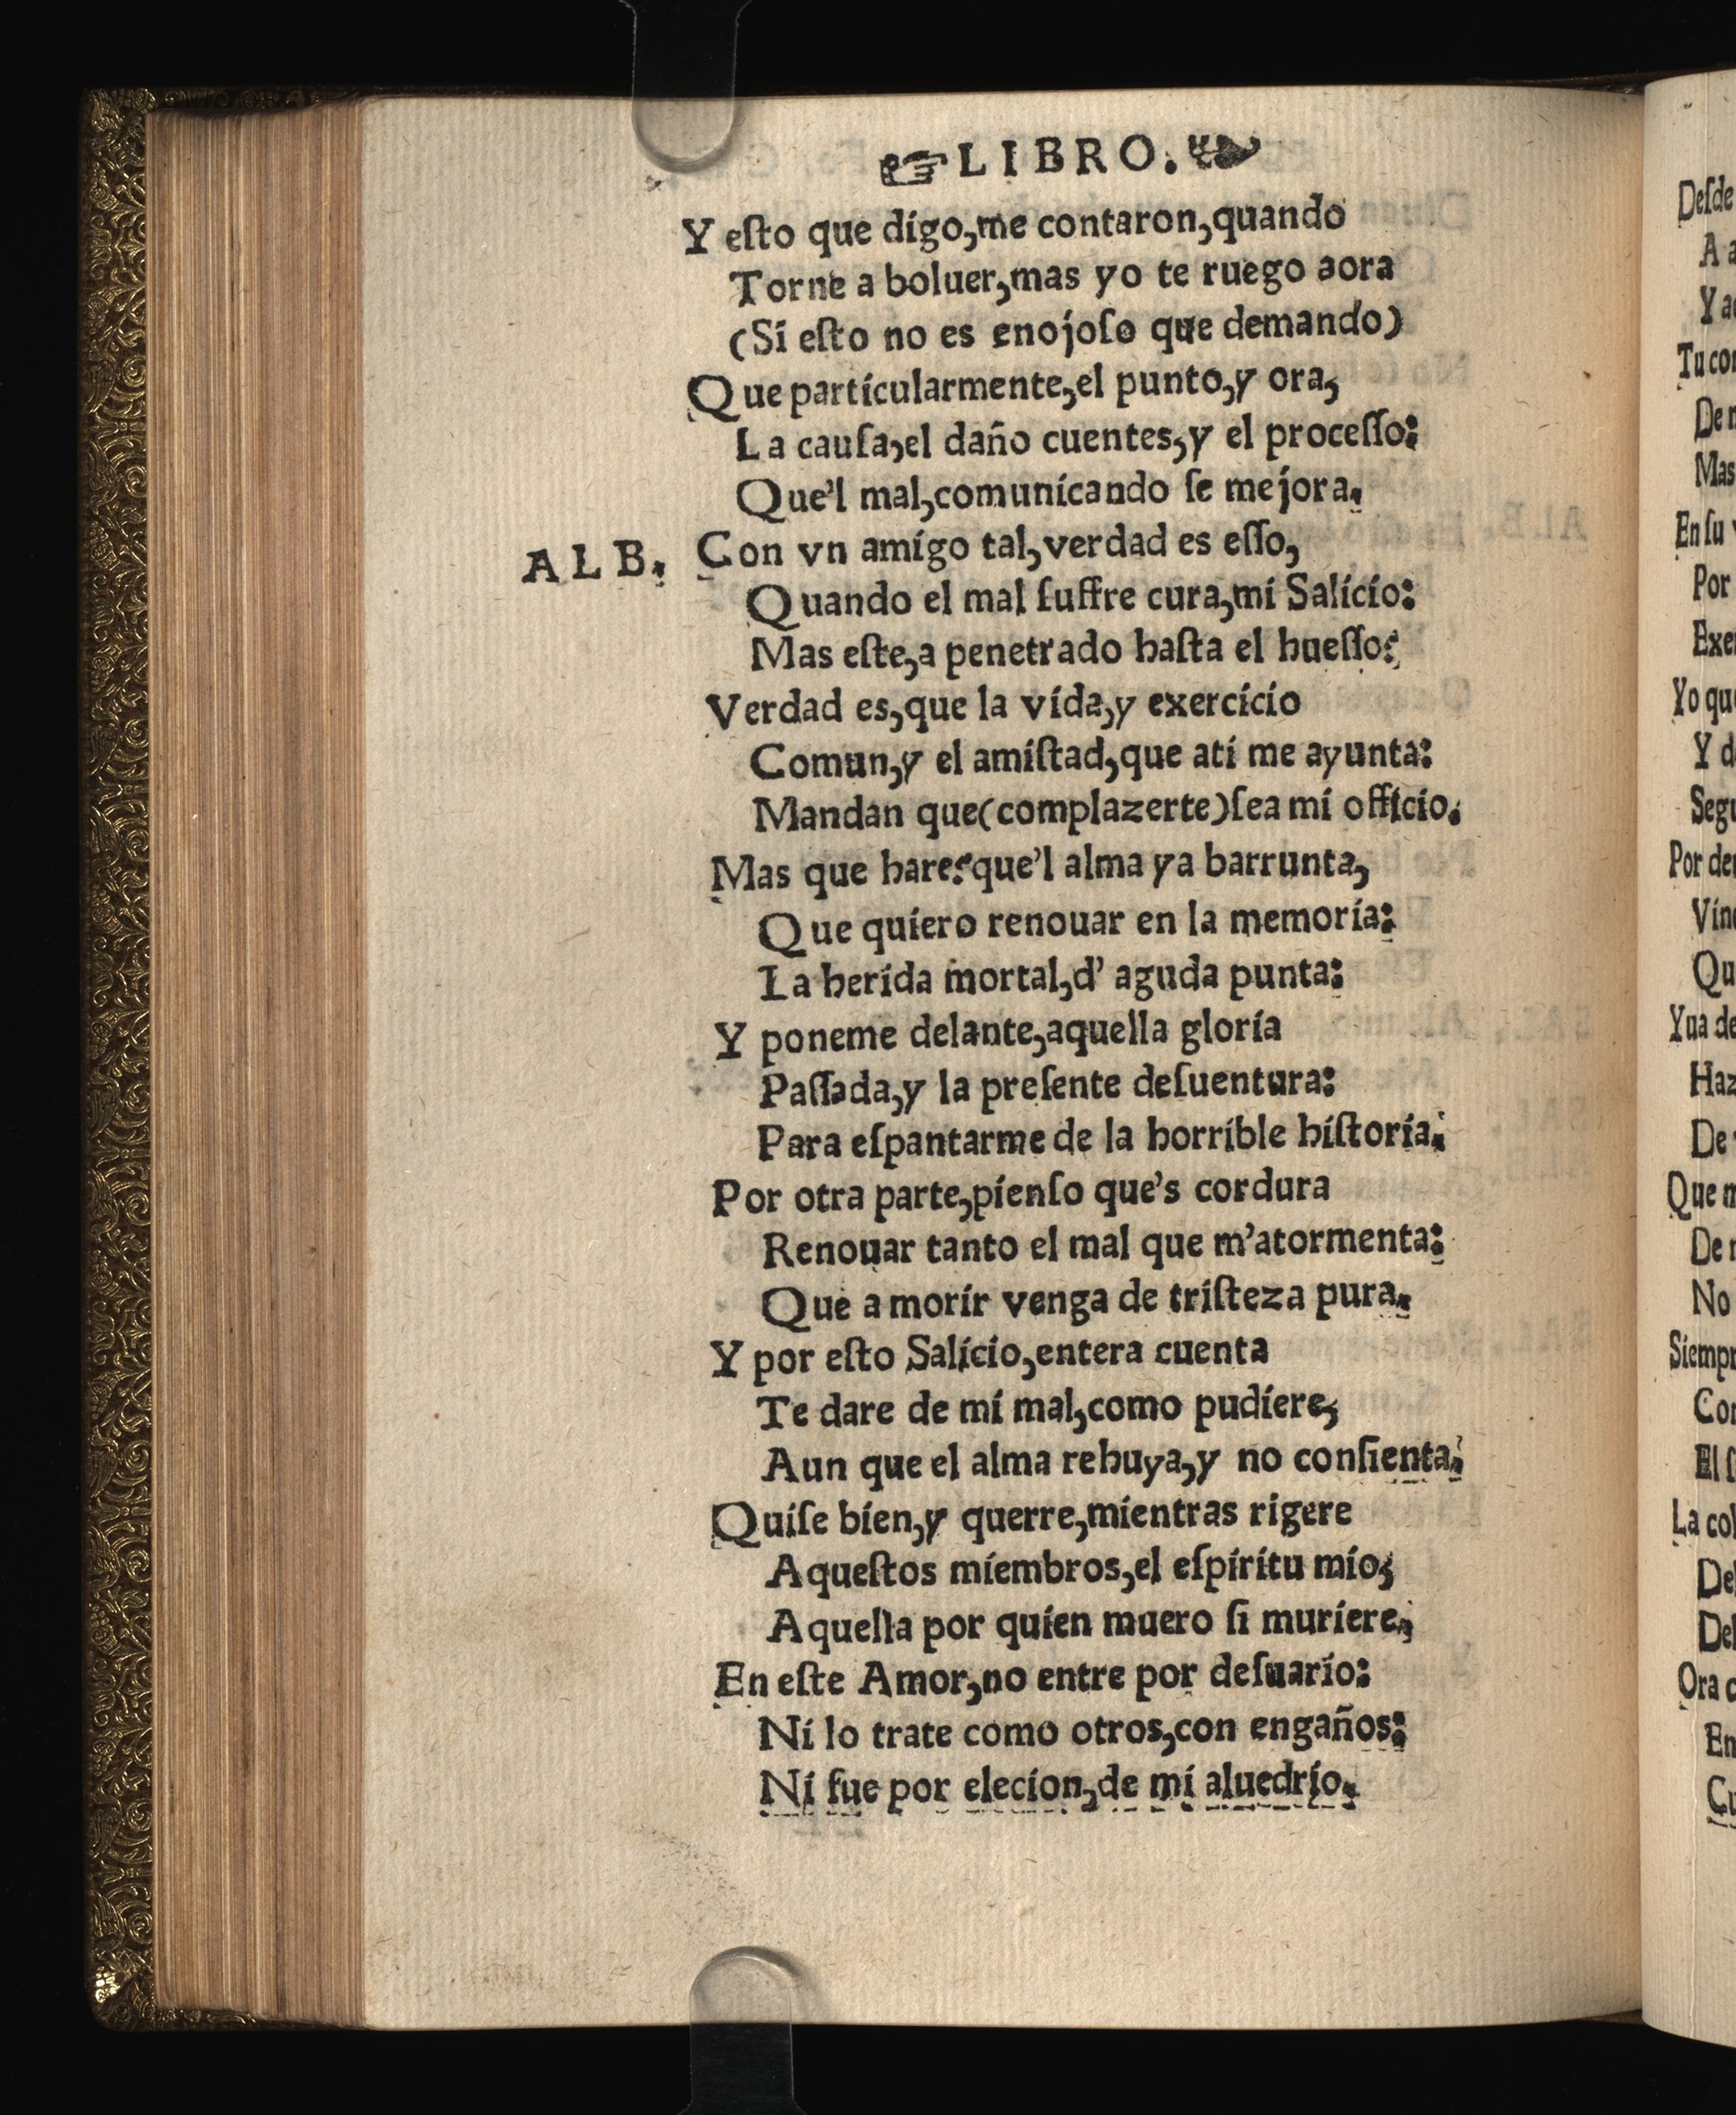 ☞ LIBRO. ❧
Y eſto que digo,me contaron,quando
Torne a boluer,mas yo te ruego aora
(Si eſto no es enojoſo que demando)
Que particularmente,el punto,y ora,
La cauſa,el daño cuentes,y el proceſſo:
Que'l mal,comunicando ſe mejora.
ALB. Con vn amigo tal,verdad es eſſo,
Quando el mal ſuffre cura,mi Salicio:
Mas eſte,a penetrado haſta el hueſſo:
Verdad es,que la vida,y exercicio
Comun,y el amiſtad,que ati me ayunta:
Mandan que(complazerte)ſea mi officio.
Mas que hare?que'l alma ya barrunta,
Que quiero renouar en la memoria:
La herida mortal,d' aguda punta:
Y poneme delante,aquella gloria
Paſſada,y la preſente deſuentura:
Para eſpantarme de la horrible hiſtoria.
Por otra parte,pienſo que's cordura
Renouar tanto el mal que m'atormenta:
Que a morir venga de triſteza pura.
Y por eſto Salicio,entera cuenta
Te dare de mi mal,como pudiere,
Aun que el alma rehuya,y no conſienta.
Quiſe bien,y querre,mientras rigere
Aqueſtos miembros,el eſpiritu mio,
Aquella por quien muero ſi muriere.
En eſte Amor,no entre por deſuario:
Ni lo trate como otros,con engaños:
Ni fue por elecion,de mi aluedrio.
Deſde
Tu con
De
Mas
En ſu
Por
Yo que
Y d
Por
Qu
Yua de
Haz
De
Que
De
No
Siempr
El
La col
Ora
En